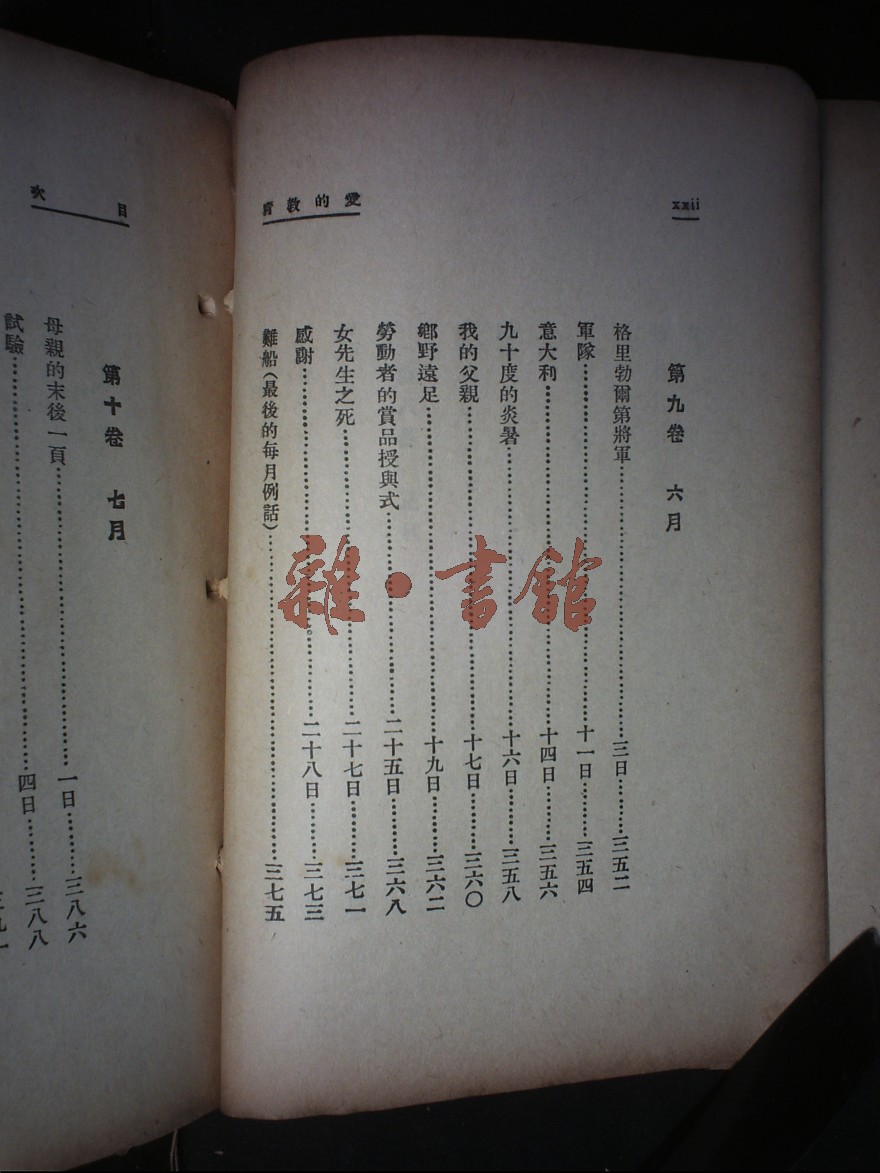 xxii
愛的教育
第九卷 六月
格里勃爾第將軍……三日……三五二
軍隊……十一日……三五四
意大利……十四日……三五六
九十度的炎暑……十六日……三五八
我的父親……十七日……三六〇
鄉野遠足……十九日……三六二
勞動者的賞品授與式……二十五日……三六八
女先生之死……二十七日……三七一
感謝……二十八日……三七三
難船(最後的每月例話)……三七五
目次
第十卷 七月
母親的末後一頁……一日……三八六
試驗……四日……三八八
雜·書館